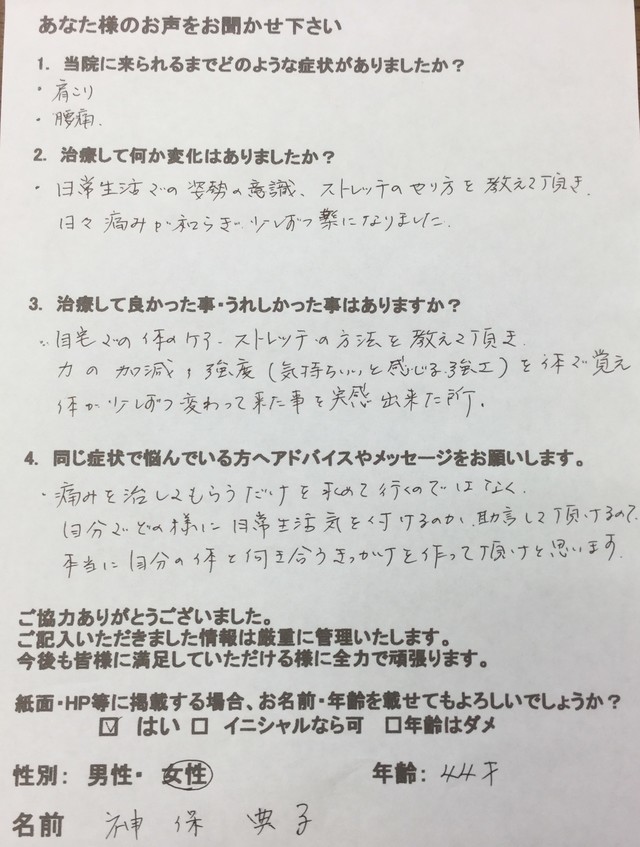 あなた様のお声をお聞かせ下さい
1. 当院に来られるまでどのような症状がありましたか？
・肩こり
・腰痛.
2. 治療して何か変化はありましたか？
・日常生活での姿勢の意識、ストレッチのやり方を教えて頂き、
日々痛みが和らぎ少しずつ楽になりました.
3. 治療して良かった事・うれしかった事はありますか？
・自宅での体のケア、ストレッチの方法を教えて頂き
力の加減、強度（気持ちいいと感じる強さ）を体で覚え
体が少しずつ変わって来た事を実感出来た所.
4. 同じ症状で悩んでいる方へアドバイスやメッセージをお願いします。
・痛みを治してもらうだけを求めて行くのではなく、
自分でどの様に日常生活気を付けるのか、助言して頂けるので
本当に自分の体と向き合うきっかけを作って頂けと思います.
ご協力ありがとうございました。
ご記入いただきました情報は厳重に管理いたします。
今後も皆様に満足していただける様に全力で頑張ります。
紙面・HP等に掲載する場合、お名前・年齢を載せてもよろしいでしょうか？
☑ はい □ イニシャルなら可 □年齢はダメ
性別： 男性・ 女性 年齢：44才
名前 神保 典子